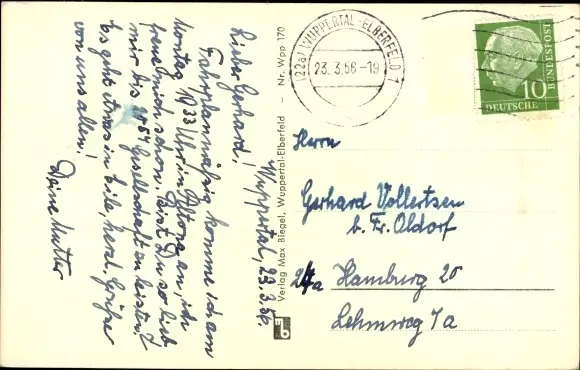 Wuppertal, 23.3.56.
Lieber Gerhard!
Fahrplanmäßig komme ich am
Montag, 19 33 Uhr in Altona an, ich
freue mich schon. Bist Du so lieb
mir bis 54 Gesellschaft zu leisten?
Es geht etwas in Eile, herzl. Grüße
von uns allen!
Deine Mutter
Verlag Max Biegel, Wuppertal-Elberfeld — Nr. Wpp 170
(22a) WUPPERTAL-ELBERFELD 1
23.3.56-19
DEUTSCHE
BUNDESPOST
10
Herrn
Gerhard Vollertsen
b. Fr. Oldorf
24a Hamburg 20
Lehmweg 7a